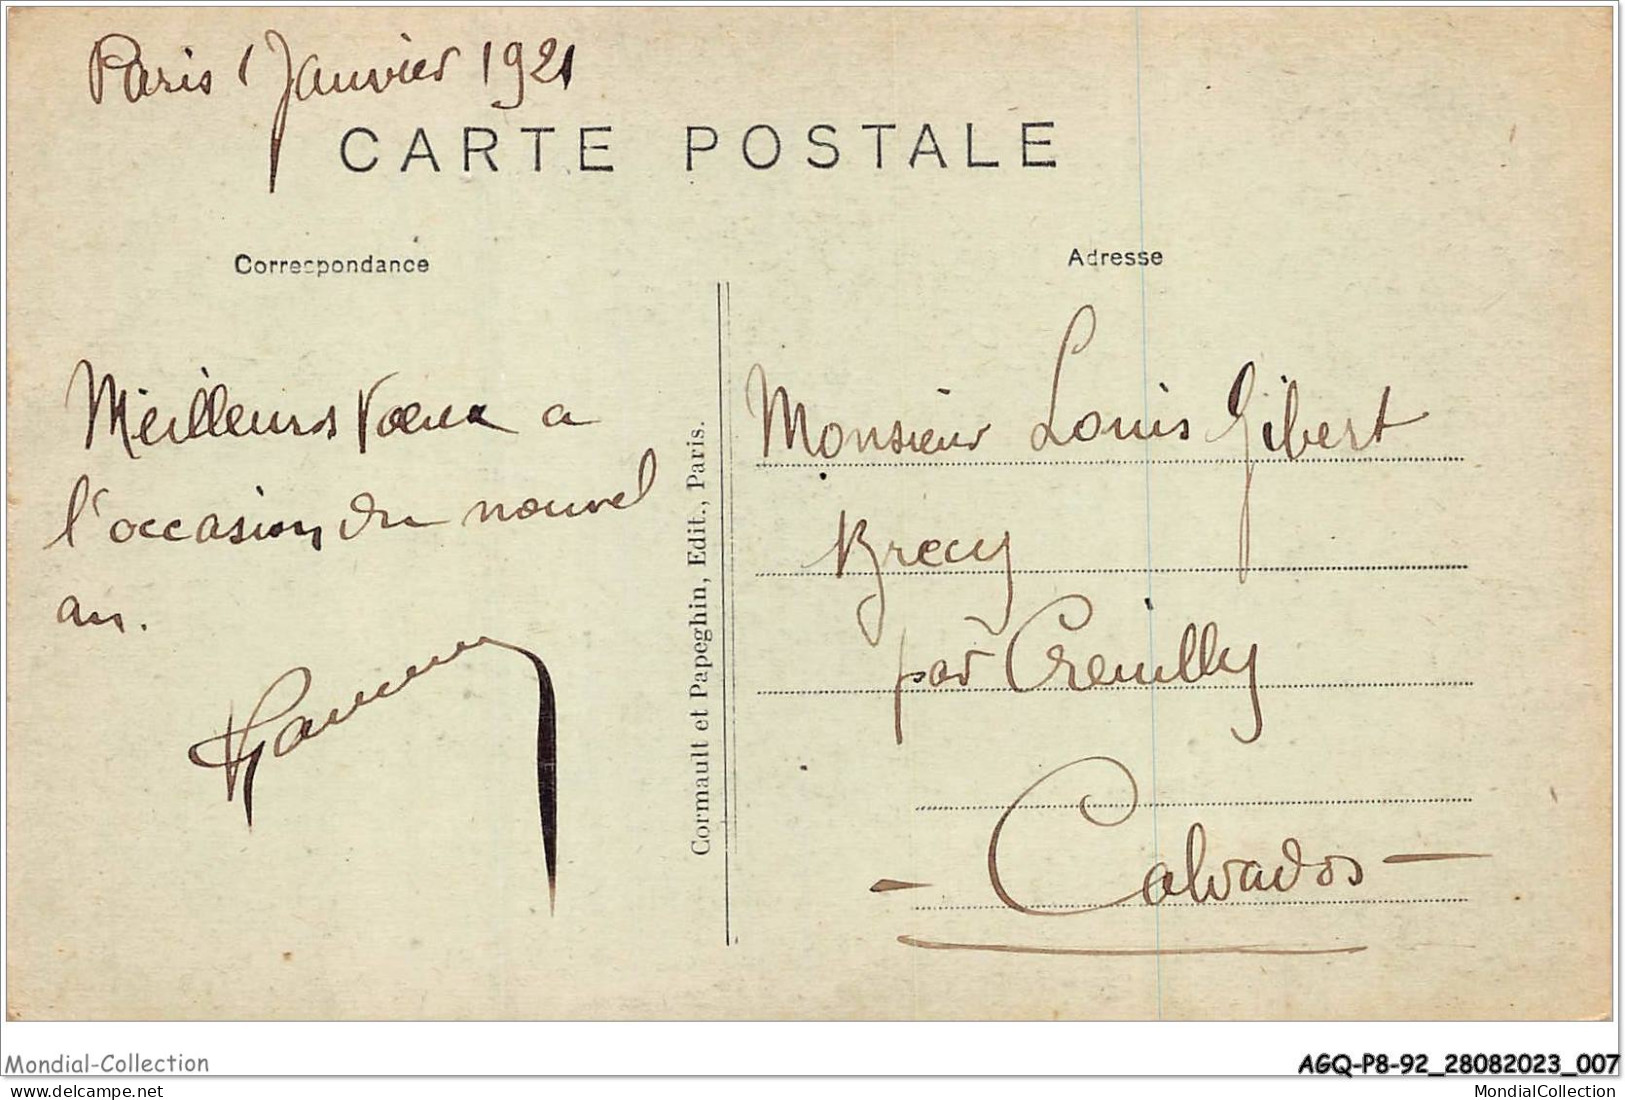 Paris 1 Janvier 1921
CARTE POSTALE
Correspondance
Adresse
Meilleurs Vœux a
l'occasion du nouvel
an.
Cormault et Papeghin, Edit., Paris.
Monsieur Louis Gibert
Brecy
par Creuilly
- Calvados -
Mondial-Collection
AGQ-P8-92_28082023_007
delcampe.net
MondialCollection